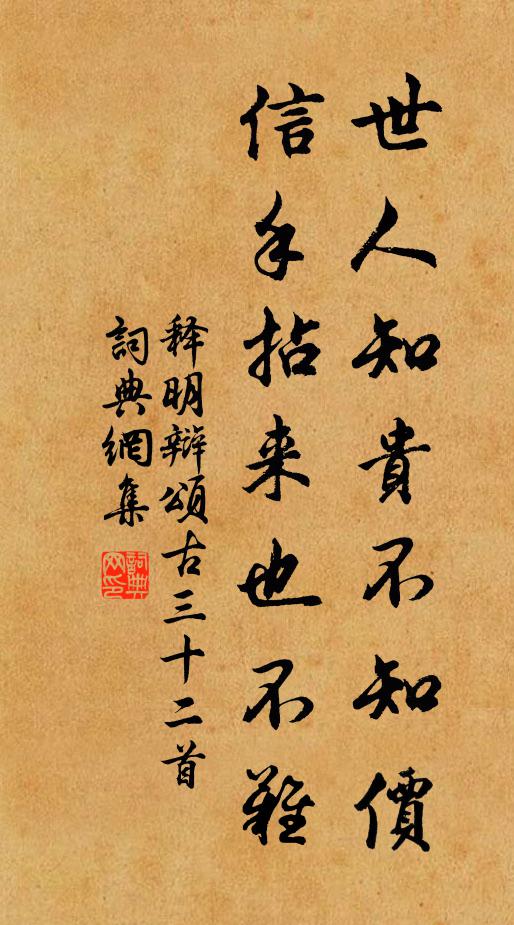 世人知貴不知價
信手拈来也不難
释明辯頌古三十二首
詞典網集
詞典网印